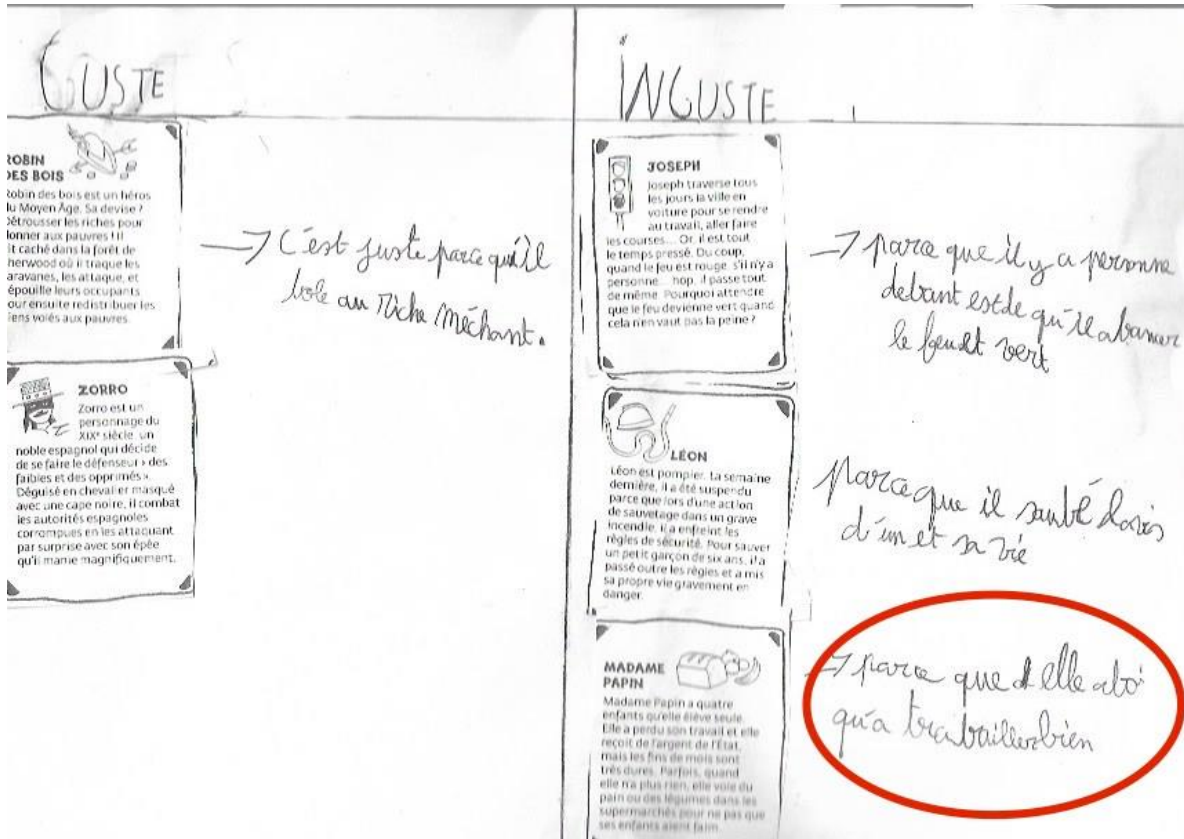 GUSTE
ROBIN
DES BOIS
Robin des bois est un héros
du Moyen Âge. Sa devise ?
Détrousser les riches pour
donner aux pauvres ! Il
it caché dans la forêt de
herwood où il traque les
aravanes, les attaque, et
épouille leurs occupants
our ensuite redistribuer les
iens volés aux pauvres.
→ C'est juste parce qu'il
bole au Riche Méchant.
ZORRO
Zorro est un
personnage du
XIXe siècle, un
noble espagnol qui décide
de se faire le défenseur « des
faibles et des opprimés ».
Déguisé en chevalier masqué
avec une cape noire, il combat
les autorités espagnoles
corrompues en les attaquant
par surprise avec son épée
qu'il manie magnifiquement.
INGUSTE
JOSEPH
Joseph traverse tous
les jours la ville en
voiture pour se rendre
au travail, aller faire
les courses... Or, il est tout
le temps pressé. Du coup,
quand le feu est rouge, s'il n'y a
personne... hop, il passe tout
de même. Pourquoi attendre
que le feu devienne vert quand
cela n'en vaut pas la peine ?
→ parce que il y a personne
debant estde qu'il abancer
le feu et vert
LÉON
Léon est pompier. La semaine
dernière, il a été suspendu
parce que lors d'une action
de sauvetage dans un grave
incendie, il a enfreint les
règles de sécurité. Pour sauver
un petit garçon de six ans, il a
passé outre les règles et a mis
sa propre vie gravement en
danger.
parce que il saubé
d'un et sa vie
MADAME
PAPIN
Madame Papin a quatre
enfants qu'elle élève seule.
Elle a perdu son travail et elle
reçoit de l'argent de l'État,
mais les fins de mois sont
très dures. Parfois, quand
elle n'a plus rien, elle vole du
pain ou des légumes dans les
supermarchés pour ne pas que
ses enfants aient faim.
→ parce que elle
qu'a trabailler bien